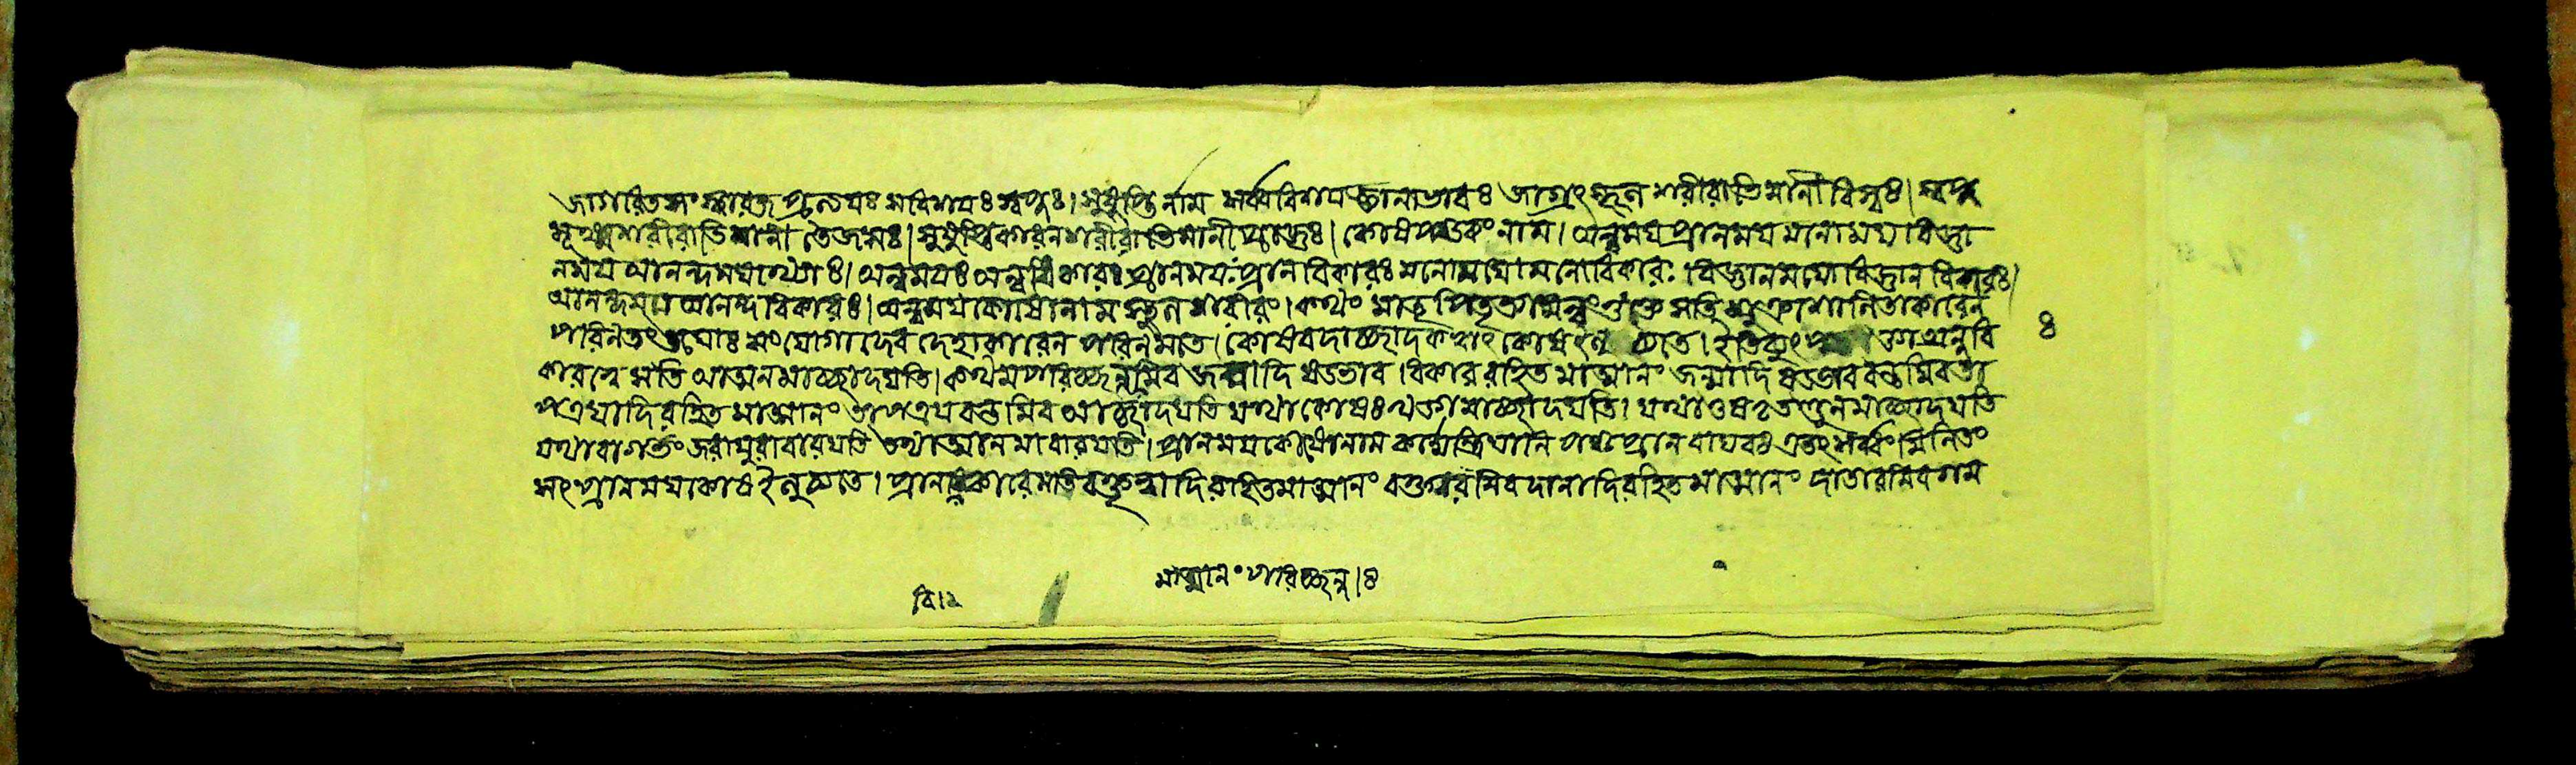 জাগরিতসংস্কারজপ্রত্যয়ঃ সবিষয়ঃ স্বপ্নঃ। সুষুপ্তি র্নাম সর্ব্ববিষয়জ্ঞানাভাবঃ জাগ্রৎ স্থূল শরীরাভিমানী বিশ্বঃ। স্বপ্ন
সূক্ষ্মশরীরাভিমানী তৈজসঃ। সুষুপ্তিকারনশরীরাভিমানী প্রাজ্ঞঃ। কোষপঞ্চকং নাম। অন্নময়প্রানময়মনোময়বিজ্ঞা
নময়আনন্দময়াখ্যাঃ। অন্নময়ঃ অন্নবিকারঃ প্রানময়ঃ প্রানবিকারঃ মনোময়োমনোবিকারঃ বিজ্ঞানময়োবিজ্ঞানবিকারঃ।
আনন্দময় আনন্দবিকারঃ। অন্নময়কোষোনাম স্থূলশরীরং। কথং মাতৃপিতৃভ্যামন্নং ভুক্তে সতি শুক্রশোনিতাকারেন
পরিনতং তয়োঃ সংযোগাদেব দেহাকারেন পরিনমতে। কোষবদাচ্ছাদকত্বাৎ কোষইত্যুচ্যতে। ইতি অন্নবি
কারত্বে সতি আত্মানমাচ্ছাদয়তি। কথমপরিচ্ছন্নমিব জন্মাদি ষড্ভাব বিকাররহিতমাত্মানং জন্মাদি ষড্ভাববন্তমিবতা
পত্রয়াদিরহিতমাত্মানং তাপত্রয়বন্তমিব আচ্ছাদয়তি যথা কোষঃ খড্গমাচ্ছাদয়তি। যথাতুষঃ তণ্ডুলমাচ্ছাদয়তি
যথাবাগর্ভং জরায়ুরাবারয়তি তথাআত্মানমাবারয়তি। প্রানময়কোষোনাম কর্ম্মেন্দ্রিয়ানি পঞ্চপ্রানবায়বঃ এতৎ সর্ব্বং মিলিতং
সৎ প্রানময়কোষইত্যুচ্যতে। প্রানবিকারেসতি বক্তৃত্বাদিরহিতমাত্মানং বক্তারমিব দানাদিরহিতমাত্মানং দাতারমিবগম
মাত্মানং পরিচ্ছন্ন।ঃ
বি।২